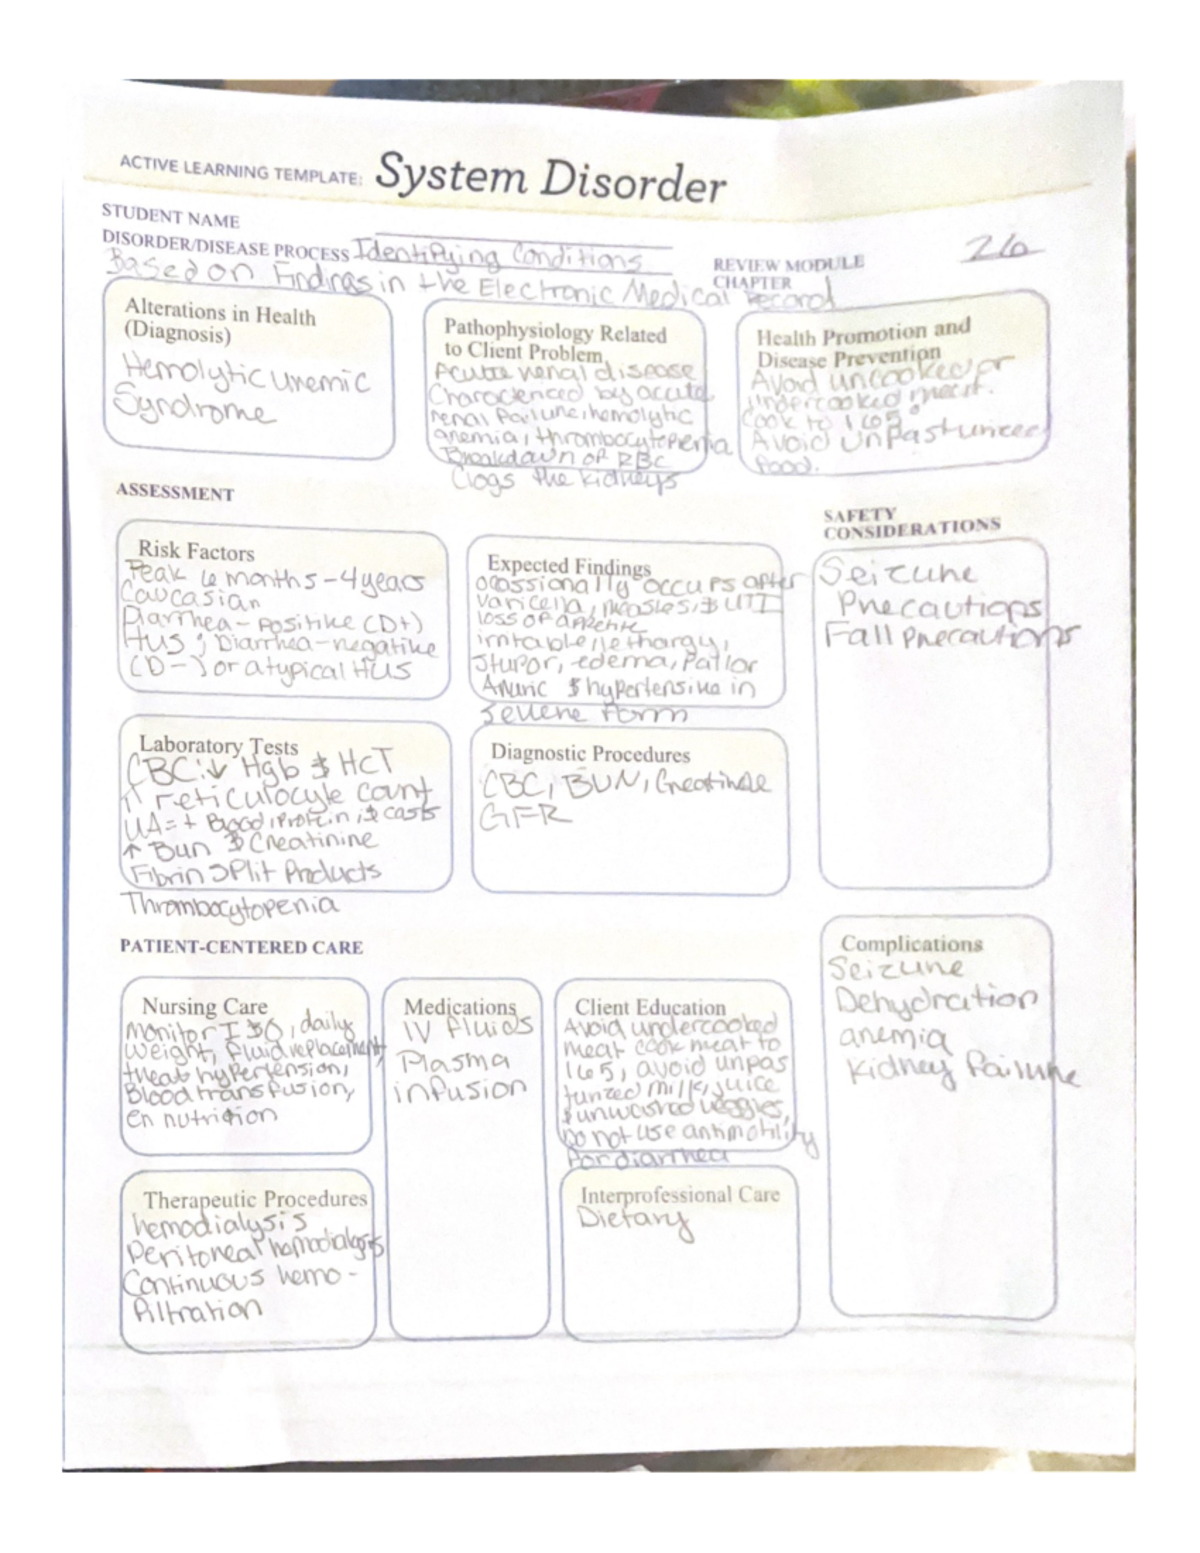 ACTIVE LEARNING TEMPLATE: System Disorder
STUDENT NAME
DISORDER/DISEASE PROCESS Identifying Conditions
Based on Findings in the Electronic Medical Record
REVIEW MODULE
CHAPTER
26
Alterations in Health
(Diagnosis)
Hemolytic uremic
Syndrome
Pathophysiology Related
to Client Problem
Acute renal disease
Characterized by acute
renal failure, hemolytic
anemia, thrombocytopenia
Breakdown of RBC
Clogs the kidneys
Health Promotion and
Disease Prevention
Avoid uncooked or
undercooked meat.
Cook to 165°
Avoid unpasturized
food.
ASSESSMENT
Risk Factors
Peak 6 months-4years
Caucasian
Diarrhea-Positike (D+)
HUS; Diarrhea-negatike
(D-) or atypical HUS
Expected Findings
ocassionally occurs after
varicella, measles, & UTI
loss of appetite
irritable, lethargy,
stupor, edema, Pallor
Anuric & hypertensive in
severe form
SAFETY
CONSIDERATIONS
Seizure
Precautions
Fall precautions
Laboratory Tests
CBC: ↓ Hgb & HCT
↑ reticulocyte count
UA=+ Blood, Protein, & casts
↑ Bun & Creatinine
Fibrin Split Products
Thrombocytopenia
Diagnostic Procedures
CBC, BUN, Creatinine
GFR
PATIENT-CENTERED CARE
Nursing Care
monitor I & O, daily
weight, fluid replacement,
treat hypertension,
Blood transfusion,
en nutrition
Medications
IV fluids
Plasma
infusion
Client Education
Avoid undercooked
meat cook meat to
165, avoid unpas
turized milk, juice
& unwashed veggies,
Do not use antimotility
for diarrhea
Complications
Seizure
Dehydration
anemia
Kidney failure
Therapeutic Procedures
hemodialysis
Peritoneal hemodialysis
Continuous hemo-
filtration
Interprofessional Care
Dietary